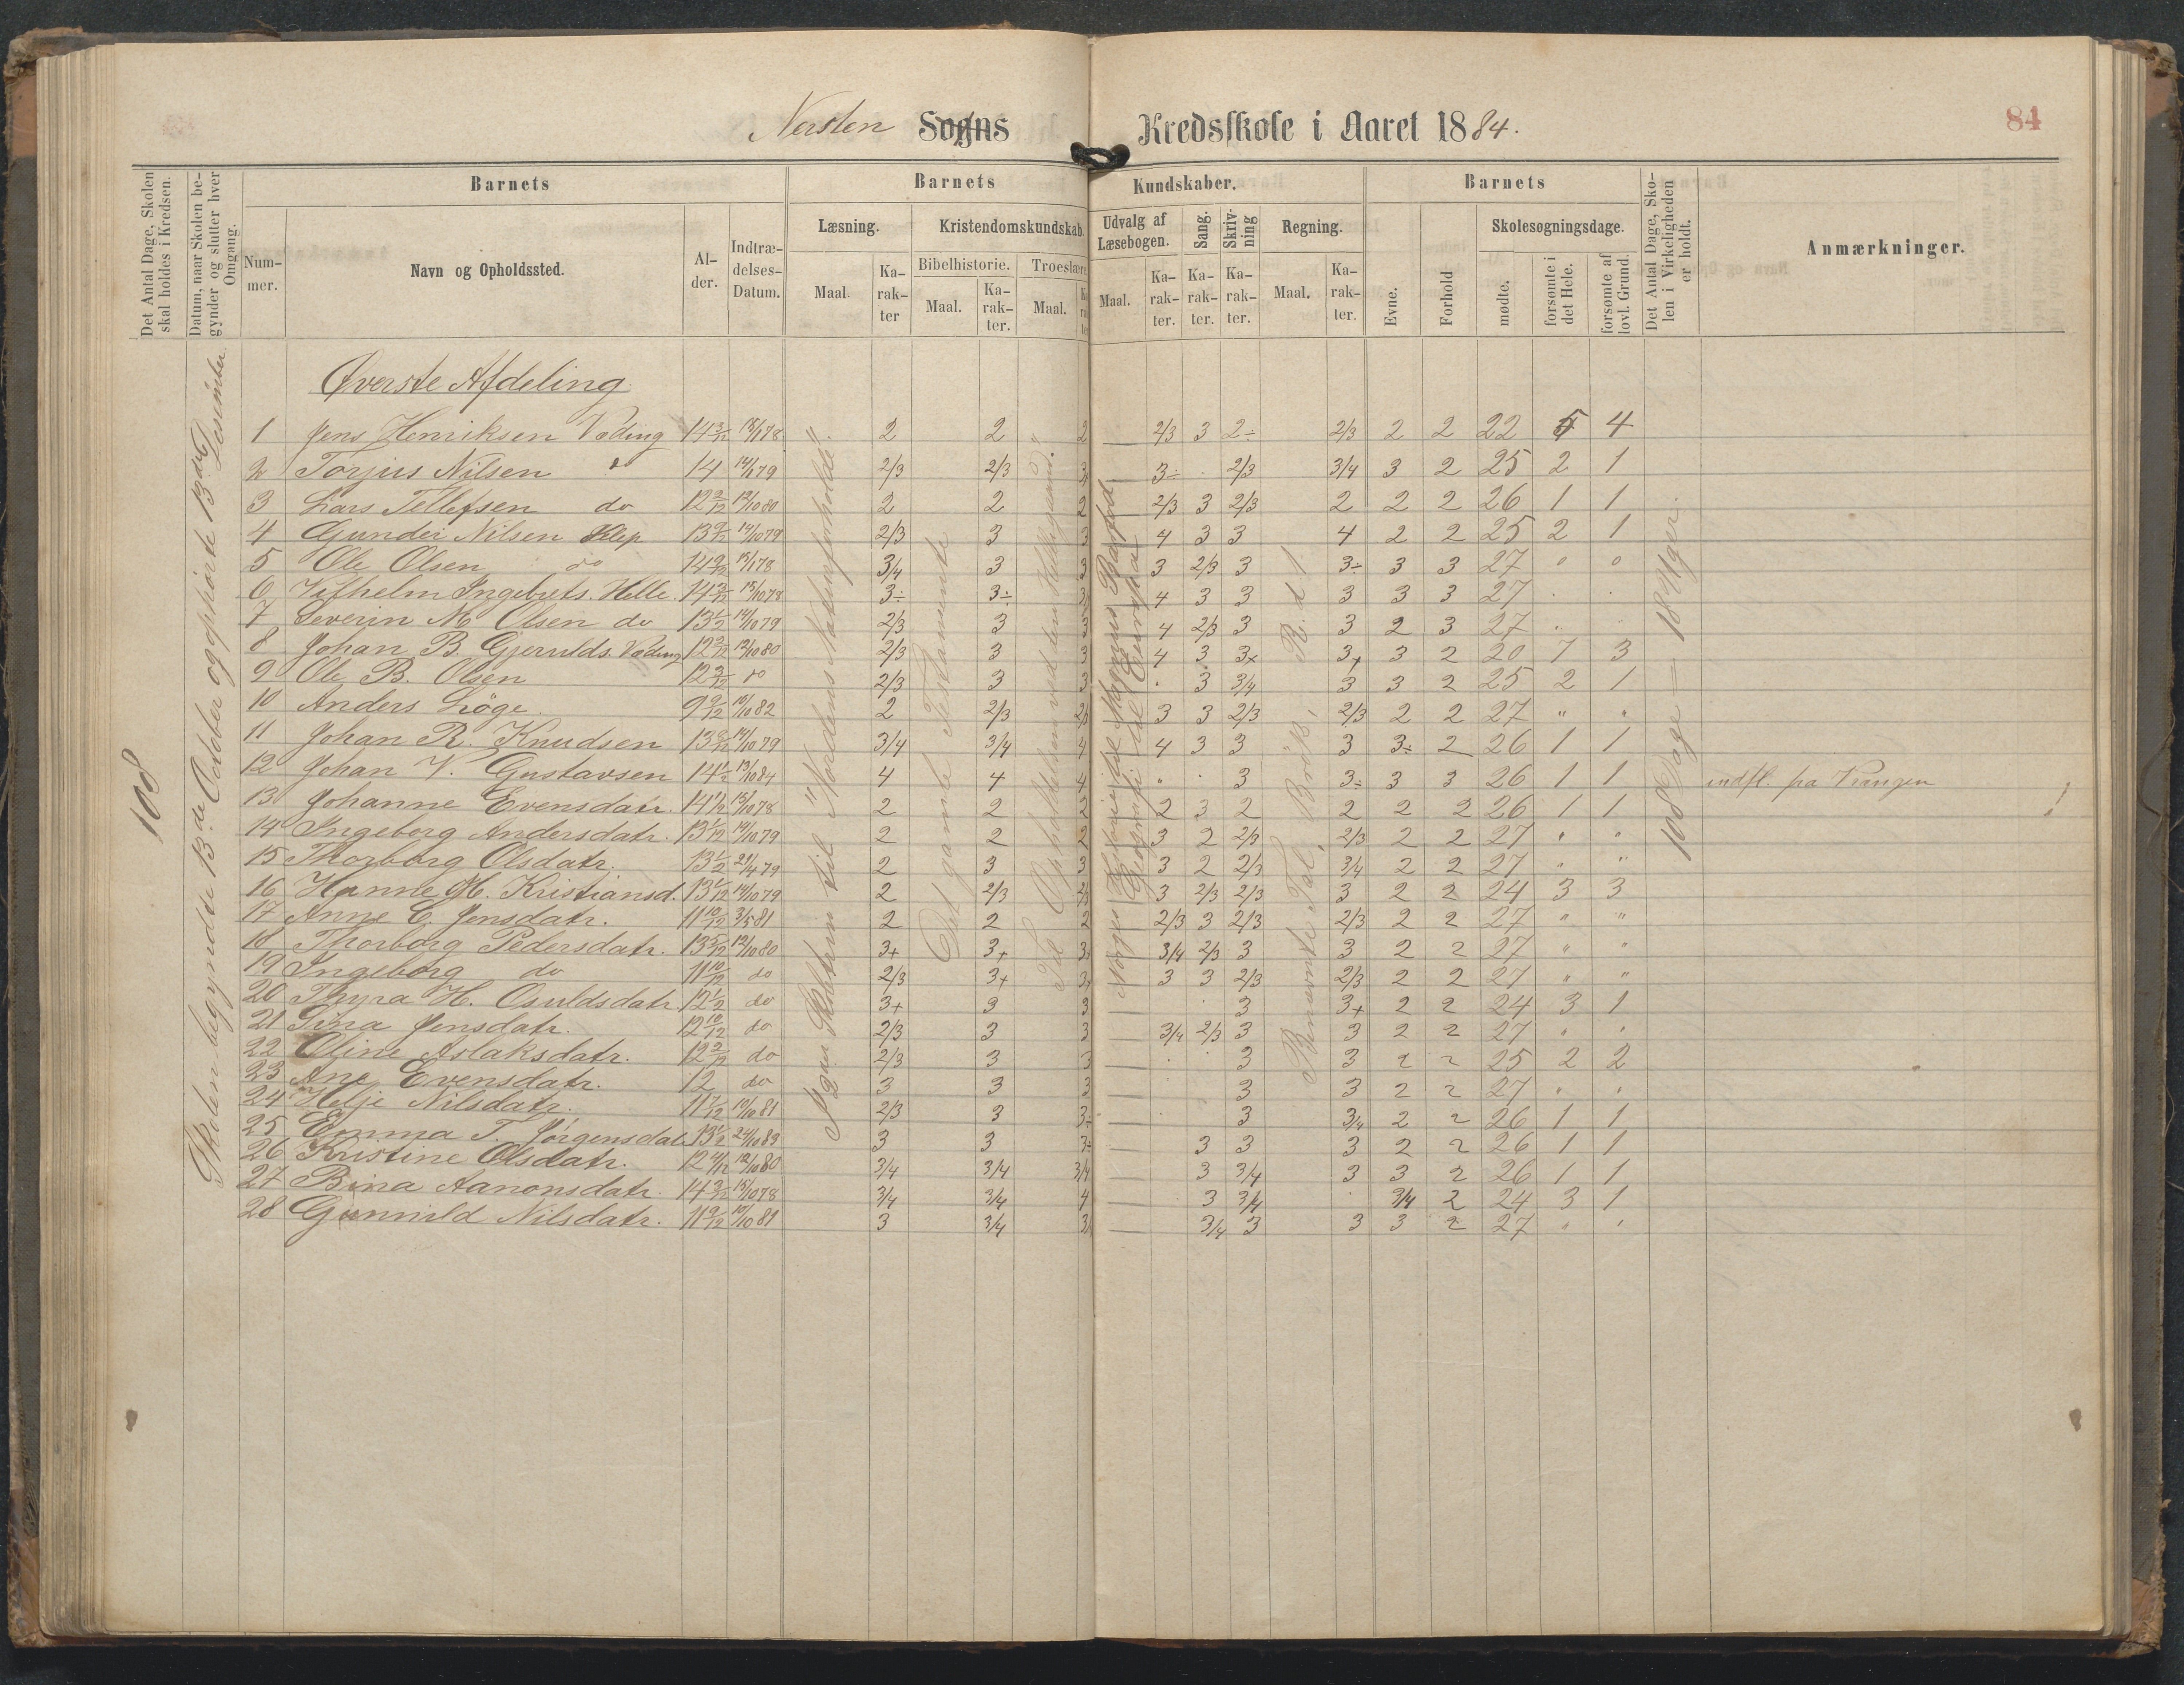 Nersten Sogns Kredsskole i Aaret 1884.
84
Det Antal Dage, Skolen skal holdes i Kredsen.
Datum, naar Skolen begynder og slutter hver Omgang.
Barnets
Nummer.
Navn og Opholdssted.
Alder.
Indtrædelses-Datum.
Barnets Kundskaber.
Læsning.
Maal.
Karakter
Kristendomskundskab.
Bibelhistorie.
Maal.
Karakter.
Troeslære
Maal.
Udvalg af Læsebogen.
Maal.
Karakter.
Sang.
Karakter.
Skrivning
Karakter.
Regning.
Maal.
Karakter.
Barnets
Evne.
Forhold
Skolesøgningsdage.
mødte.
forsømte i det Hele.
forsømte af lovl. Grund.
Det Antal Dage, Skolen i Virkeligheden er holdt.
Anmærkninger.
108
Skolen begyndte 13de October og ophørte 13de Desember
Øverste Afdeling
1 Jens Henriksen Væding 14 3/12 2 2 2 2/3 3 2÷ 2/3 2 2 22 5 4
2 Torjus Nilsen 14 14/1 79 2/3 2/3 3 3÷ 2/3 3/4 3 2 25 2 1
3 Lars Tellefsen do 12 3/12 12/10 80 2 2 2 2/3 3 2/3 2 2 2 26 1 1
4 Gunder Nilsen Klep 13 9/12 14/10 79 2/3 3 3 4 3 3 4 2 2 25 2 1
5 Ole Olsen do 3/4 3 3 3 2/3 3 3÷ 3 3 27 " "
6 Vilhelm Ingebrets. Helle 14 3/12 15/10 78 3÷ 3÷ 3 4 3 3 3 3 3 27
7 Severin M Olsen do 13 1/2 14/10 79 2/3 3 3 4 2/3 3 3 2 3 27
8 Johan B. Gjerulds. Væding 12 3/12 12/10 80 2/3 3 3 4 3 3+ 3+ 3 2 20 7 3
9 Ole B. Olsen 12 3/12 do 2/3 3 3 3 3/4 3 3 2 25 2 1
10 Anders Løge 9 9/12 10/10 82 2 2/3 2/3 3 3 2/3 2/3 2 2 27 " "
11 Johan R. Knudsen 14/10 79 3/4 3/4 4 4 3 3 3 3÷ 2 26 1 1
12 Johan V. Gustavsen 14 1/2 13/10 84 4 4 4 3 3÷ 3 3 26 1 1 indfl. fra
13 Johanne Evensdatr. 14 1/2 15/10 78 2 2 2 2 3 2 2 2 2 26 1 1
14 Ingeborg Andersdatr. 14/10 79 2 2 2 3 2 2/3 2/3 2 2 27 " "
15 Thorborg Olsdatr. 13 1/2 21/4 79 2 3 3 3 2 2/3 3/4 2 2 27 " "
16 Hanne M. Kristiansd. 13 1/12 14/10 79 2 2/3 2/3 3 2/3 2/3 3 2 2 24 3 3
17 Anne C. Jensdatr. 11 10/12 3/5 81 2 2 2 2/3 3 2/3 2/3 2 2 27 " "
18 Thorborg Pedersdatr. 13 5/12 12/10 80 3+ 3+ 3 3/4 2/3 3 3 2 2 27 " "
19 Ingeborg do 11 10/12 do 2/3 3+ 3 3 3 2/3 2/3 2 2 27 " "
20 Thyra H. Osuldsdatr. 12 1/2 do 3+ 3 3 3 3+ 2 2 24 3 1
21 Sina Jensdatr. 12 10/12 do 2/3 3 3 3/4 2/3 3 3 2 2 27 " "
22 Oline Aslaksdatr. 12 3/12 do 2/3 3 3 3 3 2 2 25 2 2
23 Ane Evensdatr. 12 do 3 3 3 3 3 2 2 27 " "
24 Helje Nilsdatr. 11 7/12 10/10 81 2/3 3 3÷ 3 3/4 2 2 26 1 1
25 Emma T. Jørgensdat. 13 1/2 24/10 83 3 3 3÷ 3 3 3 2 2 26 1 1
26 Kristine Olsdatr. 12 4/12 12/10 80 3/4 3/4 3/4 3 3/4 3 3 2 26 1 1
27 Bina Aanonsdatr. 14 3/12 15/10 78 3/4 3/4 4 3 3/4 3/4 2 24 3 1
28 Gunnild Nilsdatr. 11 9/12 10/10 81 3 3/4 3 3/4 3 3 3 2 27 " "
til "Nordens Naturforholde".
Det gamle Testamente
Til Opholdelsen ved den Helligaand.
Norges Historie til Magnus Barfod
Geografi til Europa
Benævnte Tal, Brøk, R. d 1
108 Dage = 18 Uger.